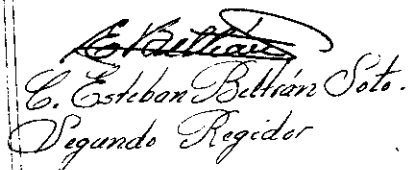 E Beltran
C. Esteban Beltrán Soto.
Segundo Regidor